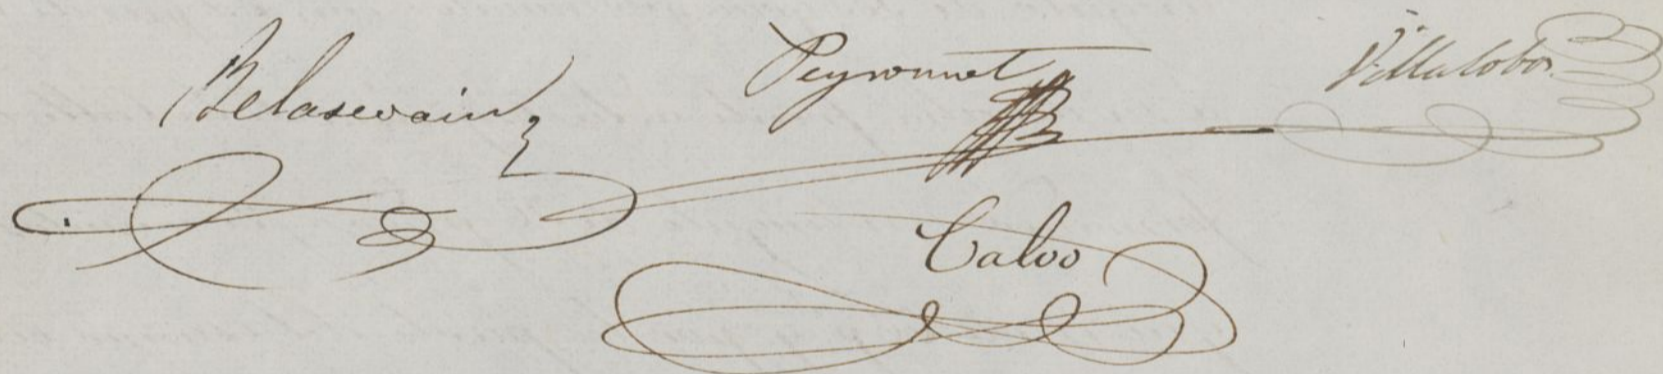 Belascoain Peyronnet Villalobos
Calvo